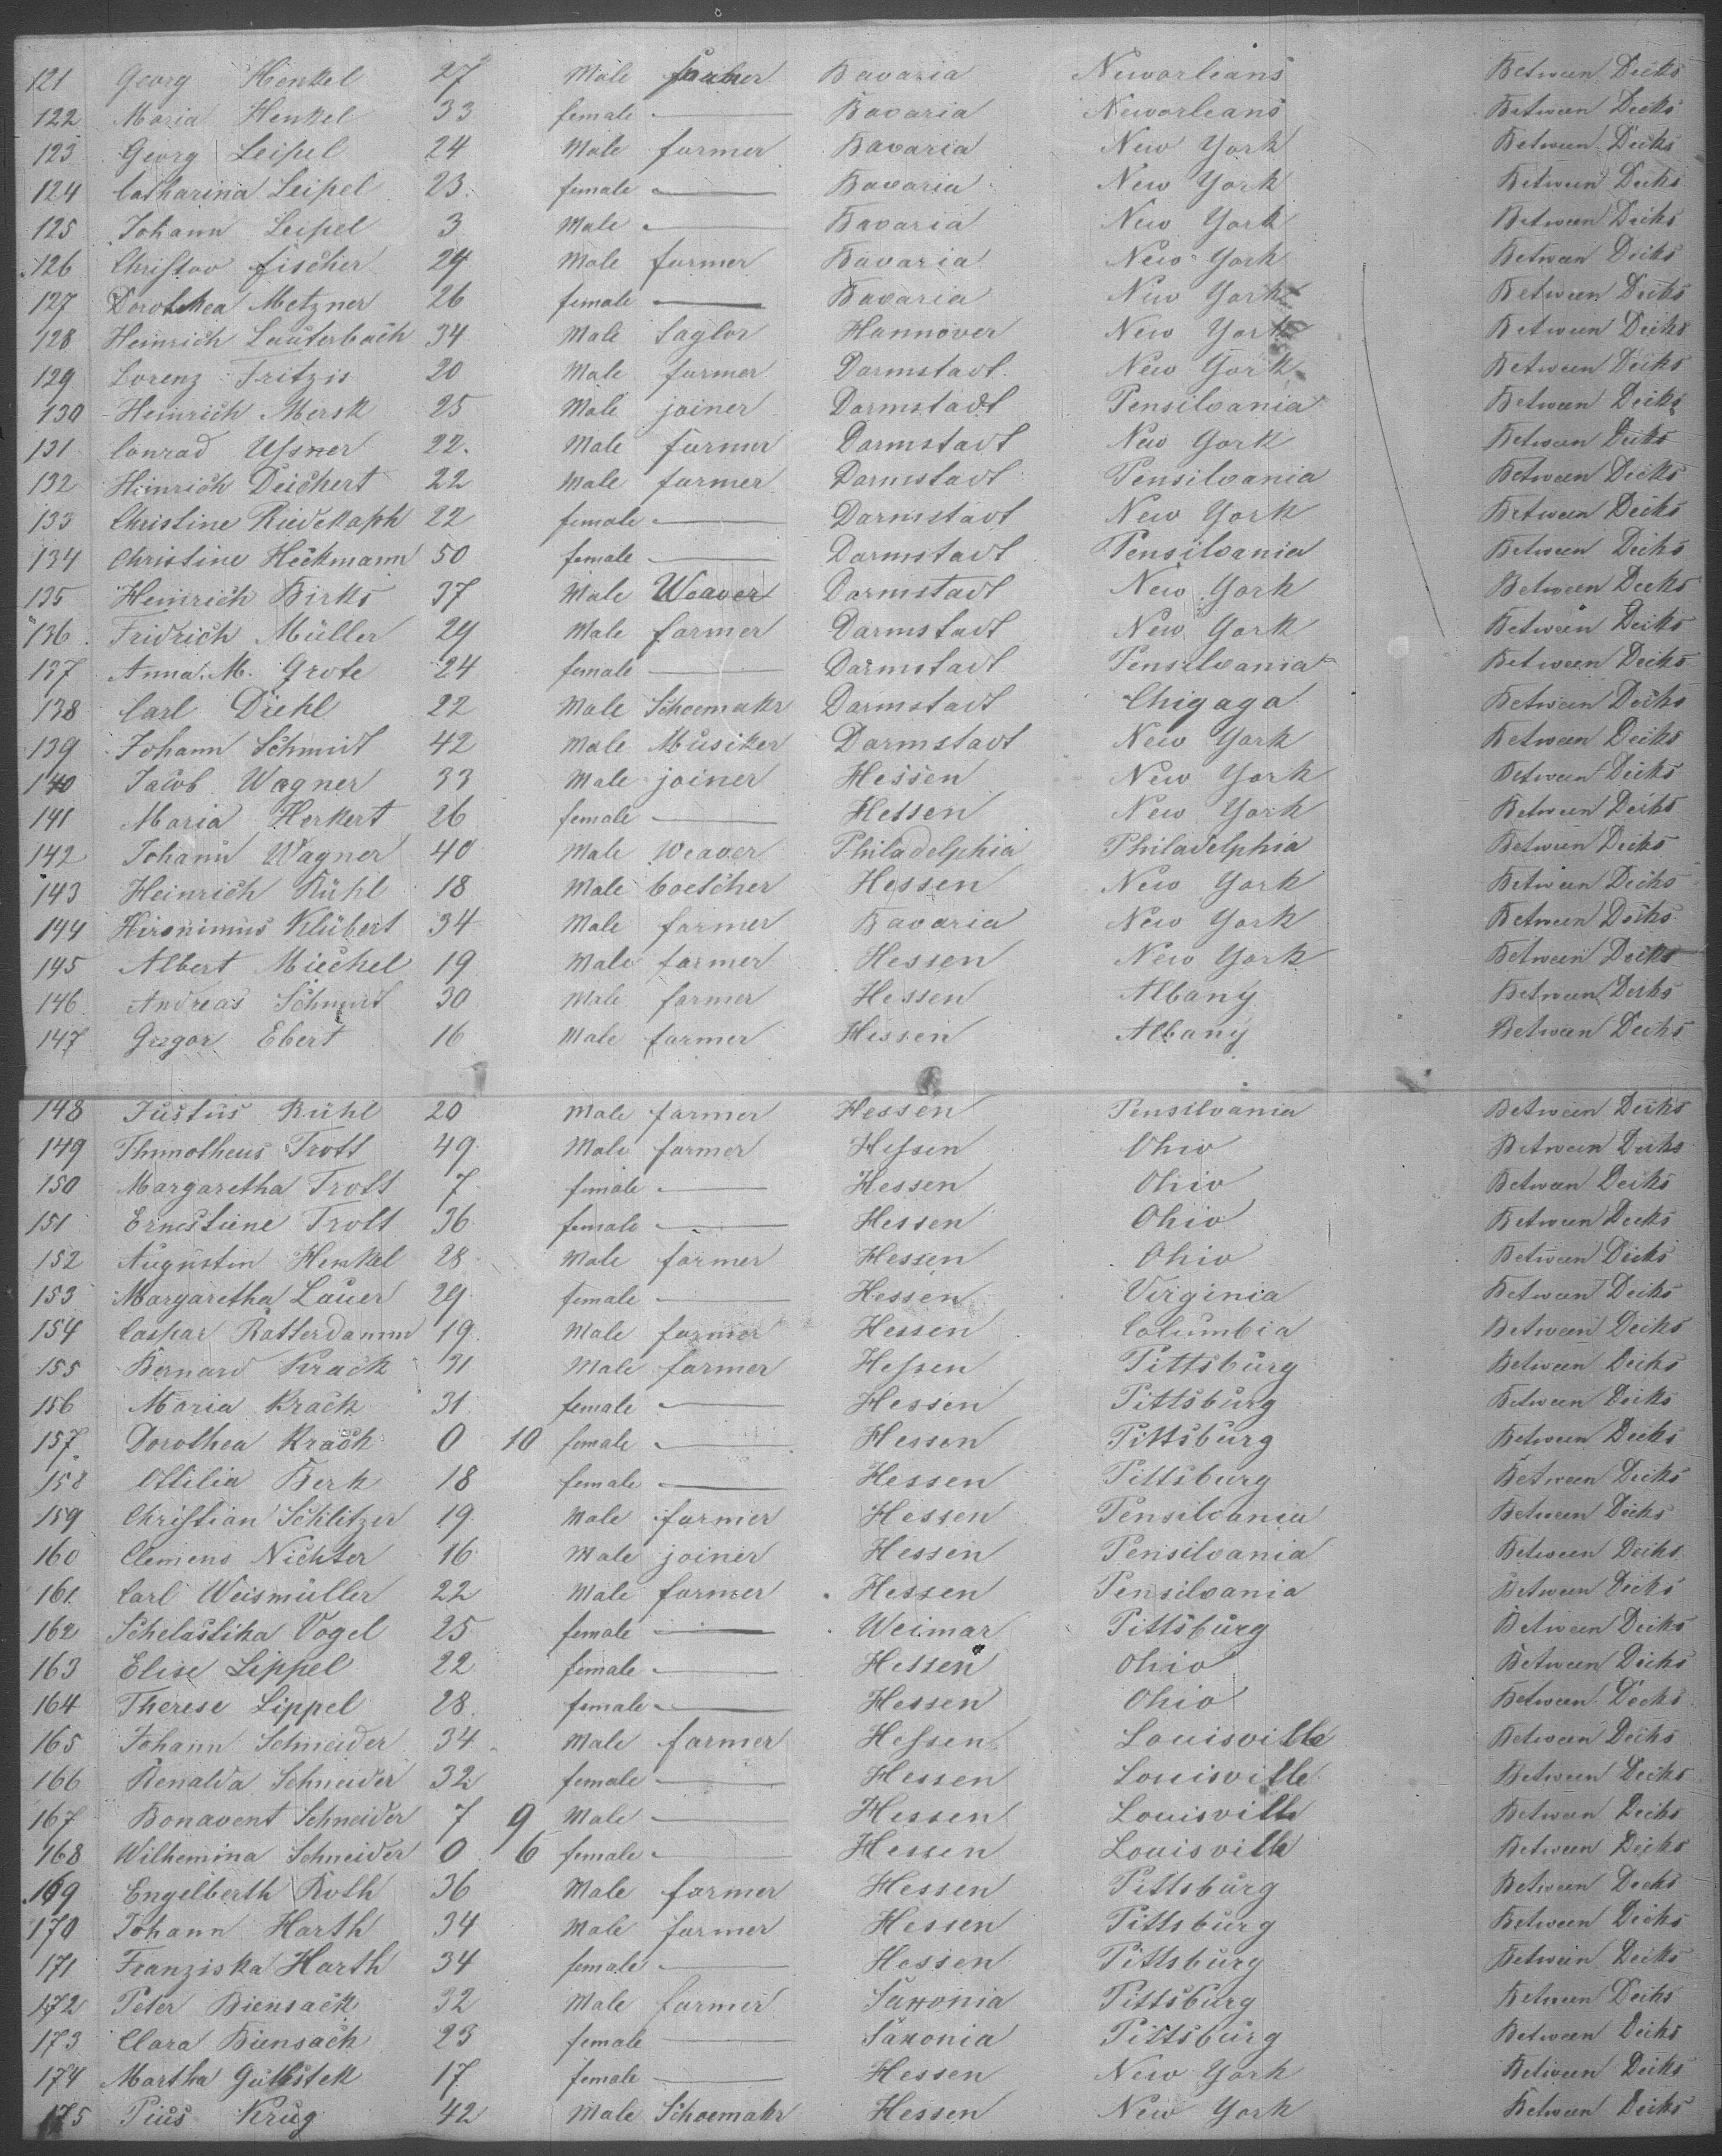 121 Georg Henkel 27 Male farmer Bavaria Neworleans Between Decks
122 Maria Henkel 33 female — Bavaria Neworleans Between Decks
123 Georg Leipel 24 Male farmer Bavaria New York Between Decks
124 Catharina Leipel 23 female — Bavaria New York Between Decks
125 Johann Leipel 3 Male — Bavaria New York Between Decks
126 Christov fischer 24 Male farmer Bavaria New York Between Decks
127 Dorothea Metzner 26 female — Bavaria New York Between Decks
128 Heinrich Lauterbach 34 Male Saglor Hannover New York Between Decks
129 Lorenz Fritzis 20 Male farmer Darmstadt New York Between Decks
130 Heinrich Mersk 25 Male joiner Darmstadt Pensilvania Between Decks
131 Conrad 22 Male farmer Darmstadt New York Between Decks
132 Heinrich Deichert 22 Male farmer Darmstadt Pensilvania Between Decks
133 Christine Riedekaph 22 female — Darmstadt New York Between Decks
134 Christine Heckmann 50 female — Darmstadt Pensilvania Between Decks
135 Heinrich Birks 37 Male Weaver Darmstadt New York Between Decks
136 Fridrich Müller 29 Male farmer Darmstadt New York Between Decks
137 Anna. M. Grote 24 female — Darmstadt Pensilvania Between Decks
138 Carl Diehl 22 Male Schoemakr Darmstadt Chigaga Between Decks
139 Johann Schmidt 42 Male Musiker Darmstadt New York Between Decks
140 Jacob Wagner 33 Male joiner Hessen New York Between Decks
141 Maria Herkert 26 female — Hessen New York Between Decks
142 Johann Wagner 40 Male Weaver Philadelphia Philadelphia Between Decks
143 Heinrich Rühl 18 Male boetcher Hessen New York Between Decks
144 Hironimus Klübert 34 Male farmer Bavaria New York Between Decks
145 Albert Miechel 19 Male farmer Hessen New York Between Decks
146 Andreas Schmidt 30 Male farmer Hessen Albany Between Decks
147 Gregor Ebert 16 Male farmer Hessen Albany Between Decks
148 Justus Rühl 20 Male farmer Hessen Pensilvania Between Decks
149 Thimotheus Trott 49 Male farmer Hessen Ohio Between Decks
150 Margaretha Trott 7 female — Hessen Ohio Between Decks
151 Ernestiene Trott 36 female — Hessen Ohio Between Decks
152 Augustin Henkel 28 Male farmer Hessen Ohio Between Decks
153 Margaretha Lauer 29 female — Hessen Virginia Between Decks
154 Caspar Rotterdamm 19 Male farmer Hessen Columbia Between Decks
155 Bernard Krack 31 Male farmer Hessen Pittsburg Between Decks
156 Maria Krack 31 female — Hessen Pittsburg Between Decks
157 Dorothea Krack 0 10 female — Hessen Pittsburg Between Decks
158 Ottilia Berk 18 female — Hessen Pittsburg Between Decks
159 Christian Schlitzer 19 Male farmer Hessen Pensilvania Between Decks
160 Clemens Nichter 16 Male joiner Hessen Pensilvania Between Decks
161 Carl Weismüller 22 Male farmer Hessen Pensilvania Between Decks
162 Schelastika Vogel 25 female — Weimar Pittsburg Between Decks
163 Elise Lippel 22 female — Hessen Ohio Between Decks
164 Therese Lippel 28 female — Hessen Ohio Between Decks
165 Johann Schneider 34 Male farmer Hessen Louisville Between Decks
166 Renalda Schneider 32 female — Hessen Louisville Between Decks
167 Bonavent Schneider 7 9 Male — Hessen Louisville Between Decks
168 Wilhemina Schneider 0 6 female — Hessen Louisville Between Decks
169 Engilberth Roth 36 Male farmer Hessen Pittsburg Between Decks
170 Johann Harth 34 Male farmer Hessen Pittsburg Between Decks
171 Franziska Harth 34 female — Hessen Pittsburg Between Decks
172 Peter Biensack 32 Male farmer Saxonia Pittsburg Between Decks
173 Clara Biensack 23 female — Saxonia Pittsburg Between Decks
174 Martha 17 female — Hessen New York Between Decks
175 Pius Krug 42 Male Schoemakr Hessen New York Between Decks